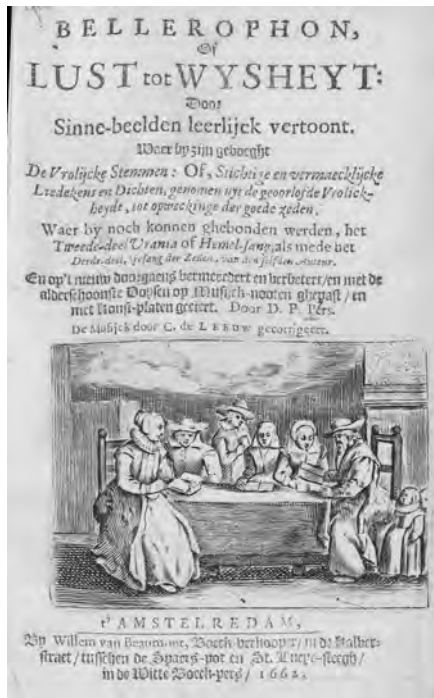 BELLEROPHON,
Of
LUST tot WYSHEYT:
Door
Sinne-beelden leerlijck vertoont.
Waer by zijn gevoeght
De Vrolijcke Stemmen: Of, Stichtige en vermaecklijcke
Liedekens en Dichten, genomen uyt de geoorlofde Vrolick-
heyde, tot opweckinge der goede zeden.
Waer by noch konnen ghebonden werden, het
Tweede-deel Urania of Hemel-sang, als mede het
Derde-deel, Gesang der Zeden, van den selfden Auteur.
En op't nieuw doorgaens vermeerdert en verbetert/ en met de
alderschoonste Voysen op Musijck-nooten ghepast/ en
met Konst-platen geciert. Door D. P. Pers.
De Musijck door C. de LEEUW gecorrigeert.
t'AMSTELREDAM,
By Willem van Beaumont, Boeck-verkooper/ in de Kalver-
straet/ tusschen de Spaens-pot en St. Lucye-steegh/
in de Witte Boeck-pers/ 1662.